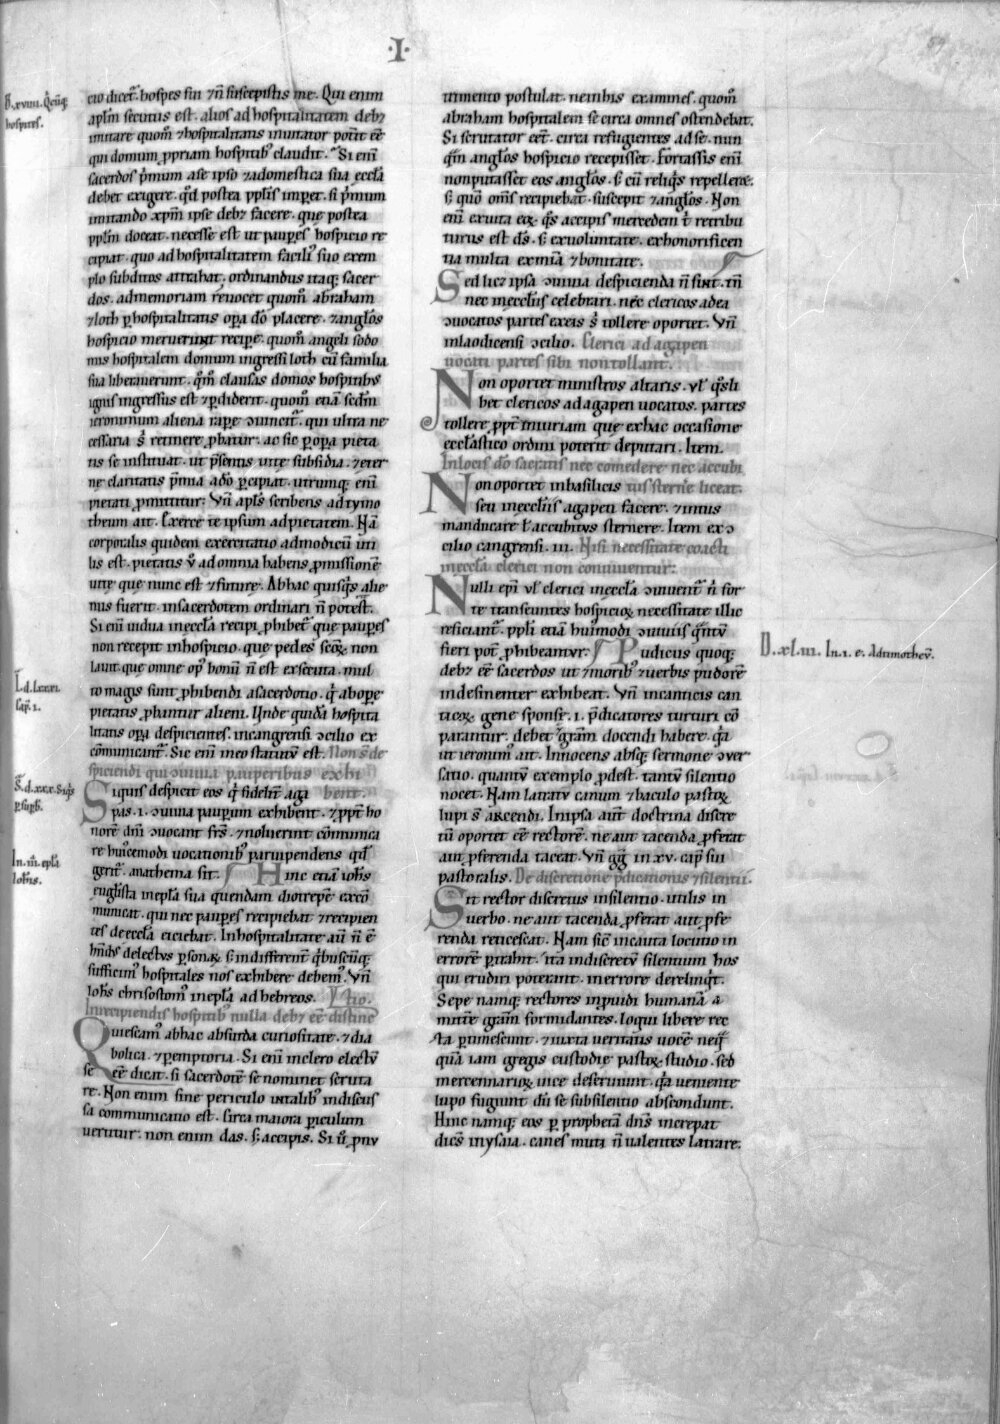 ·I·
cio dicet᷑. hospes fui ⁊ n̄ suscepistis me. Qui enim
apl̄m secutus est. alios ad hospitalitatem debꝫ
imitare quom̄ ⁊ hospitalitatis inuitator poterit eē
qui domum ꝓpriam hospitib᷒ claudit. Si eni̅
sacerdos p̄mum a se ipso ⁊ a domestica sua eccl̄a
debet exigere. qd̄ postea ppl̄is imꝑet. si p̄mum
imitando xpm̄ ipse debꝫ facere. que postea
ppl̄m doceat. necesse est ut pauꝑes hospicio re
cipiat. quo ad hospitalitatem facili᷒ suo exem
plo subditos attrahat. ordinandus itaqꝫ sacer
dos. ad memoriam reuocet quom̄ abraham
⁊ loth ꝑ hospitalitatis oꝑa dō placere. ⁊ anglōs
hospicio meruerint reciꝑe. quom̄ angeli sodo
mis hospitalem domum ingressi loth cū familia
sua liberauerunt. qm̄ clausas domos hospitibus
ignis ingressus est ⁊ ꝑdiderit. quom̄ etiā scdm̄
ieronimum aliena raꝑe ɔuincit᷑. qui ultra ne
cessaria s̄ retinere ꝓbatur. ac sic ꝑ oꝑa pieta
tis se instituat. ut p̄sentis uite subsidia. ⁊ eter
ne claritatis p̄mia a dō ꝑcipiat. utrumqꝫ eni̅
pietati ꝓmittitur. Vn̄ apl̄s scribens ad tymo
theum ait. Exerce te ipsum ad pietatem. Nā
corporalis quidem exercitatio ad modicū uti
lis est. pietatis ū ad omnia habens ꝓmissionē
uite que nunc est ⁊ future. Ab hac quisqs alie
nus fuerit. in sacerdotem ordinari n̄ potest.
Si eni̅ uidua in eccl̄a recipi ꝓhibet᷑ que pauꝑes
non recepit in hospicio. que pedes scōꝝ non
lauit. que omne op᷒ bonū n̄ est exsecuta. mul
to magis sunt ꝓhibendi a sacerdotio. qi ab oꝑe
pietatis ꝓbantur alieni. Unde quidā hospita
litatis oꝑa despicientes. in cangrensi ɔcilio ex
cōmunicant᷑. Sic eni̅ in eo statutū est. Non s̄ de
spiciendi qui ɔuiuia pauperibus exhi
Siquis despicit eos qi fidelit᷑ aga bent.
pas. i. ɔuiuia pauꝑum exhibent. ⁊ ꝓpt᷑ ho
norē dn̄i ɔuocant frs̄. ⁊ noluerint cōmunica
re hui᷒cemodi uocationib᷒ paruipendens qd̄
gerit᷑. anathema sit. Hinc etiā ioh̄s
euḡlista in epl̄a sua quendam diotrepē excō
municat. qui nec pauꝑes recipiebat ⁊ recipien
tes de eccl̄a eiciebat. In hospitalitate au̅ n̄ ē
hn̄dus delectus ꝑsonaꝝ s; indifferent᷑ qibuscūqꝫ
sufficim᷒ hospitales nos exhibere debem᷒. Vn̄
Ioh̄s chrisostom᷒ in epl̄a ad hebreos.
In recipiendis hospitib᷒ nulla debꝫ eē distinc̄
Quiescam᷒ ab hac absurda curiositate. ⁊ dia
bolica. ⁊ ꝑemptoria. Si eni̅ in clero electū
se eē dicat. si sacerdotē se nominet scruta
re. Non enim sine periculo in talib᷒ indiscus
sa communicatio est. circa maiora ꝑiculum
uertitur. non enim das. s; accipis. Si ū ꝓ nu
trimento postulat. ne in his examines. quom̄
abraham hospitalem se circa omnes ostendebat.
Si scrutator eēt. circa refugientes ad se. nun
qm̄ anglōs hospicio recepisset. Fortassis eni̅
non putasset eos anglōs. s; cū reliqis repelleret.
s; quō oms̄ recipiebat. suscepit ⁊ anglōs. Non
eni̅ ex uita eoꝝ. qs accipis mercedem tibi retribu
turus est ds̄. s; ex uoluntate. ex honorificen
tia multa ex mīa ⁊ bonitate.
Sed licꝫ ipsa ɔuiuia despicienda n̄ sint. tn̄
nec in eccl̄iis celebrari. nec clericos ad ea
ɔuocatos partes ex eis s; tollere oportet. Vn̄
in laodicensi ɔcilio. Clerici ad agapen
uocati partes sibi non tollant.
Non oportet ministros altaris. ul̄ qosli
bet clericos ad agapen uocatos. partes
tollere ꝓpt᷑ iniuriam que ex hac occasione
ecclasiastico ordini poterit deputari. Item.
In locis dō sacratis nec comedere nec accubi
Non oportet in basilicis tus sterne liceat.
seu in eccl̄iis agapen facere. ⁊ intus
manducare ul̄ accubitus sternere. Item ex ɔ
cilio cangrensi. iii. Nisi necessitate coacti
in eccl̄a clerici non conuiuentur.
Nulli epī ul̄ clerici in eccl̄a ɔuiuent᷑ ni for
te transeuntes hospicioꝝ necessitate illic
reficiant᷑. ppl̄i etiā hui᷒modi ɔuiuiis qantū
fieri pot̄ ꝓhibeantur. Pudicus quoqꝫ
debꝫ eē sacerdos ut ⁊ morib᷒ ⁊ uerbis pudorē
indesinenter exhibeat. Vn̄ in canticis can
ticoꝝ gene sponsi. i. p̄dicatores turturi cō
parantur. debet gr̄am docendi habere. qia
ut ieronim᷒ ait. Innocens absqꝫ sermone ɔuer
satio. quantū exemplo ꝓdest. tantū silentio
nocet. Nam latratu canum ⁊ baculo pastoꝝ
lupi s̄ arcendi. In ipsa aut̄ doctrina discre
tū oportet eē rectorē. ne aut tacenda ꝓferat
aut ꝓferenda taceat. Vn̄ gg̅ in xv. cap̄ sui
pastoralis. De discretione p̄dicationis ⁊ silentii.
Sit rector discretus in silentio. utilis in
uerbo. ne aut tacenda ꝓferat aut ꝓfe
renda reticescat. Nam sic̄ incauta locutio in
errorē ꝑtrahit. ita indiscretū silentium hos
qui erudiri poterant. in errore derelinqit.
Sepe namqꝫ rectores inꝓuidi humanā a
mittē gr̄am formidantes. loqui libere rec
ta ꝑtimescunt. ⁊ iuxta ueritatis uocē neqa
quā iam gregis custodie pastoꝝ studio. sed
mercennarioꝝ uice deseruiunt. qia ueniente
lupo fugiunt dū se sub silentio abscondunt.
Hinc namqꝫ eos ꝑ prophetā dns̄ increpat
dicēs in ysaia. canes muti n̄ ualentes latrare.
D. xl.iii. In .i. e. ad timotheū.